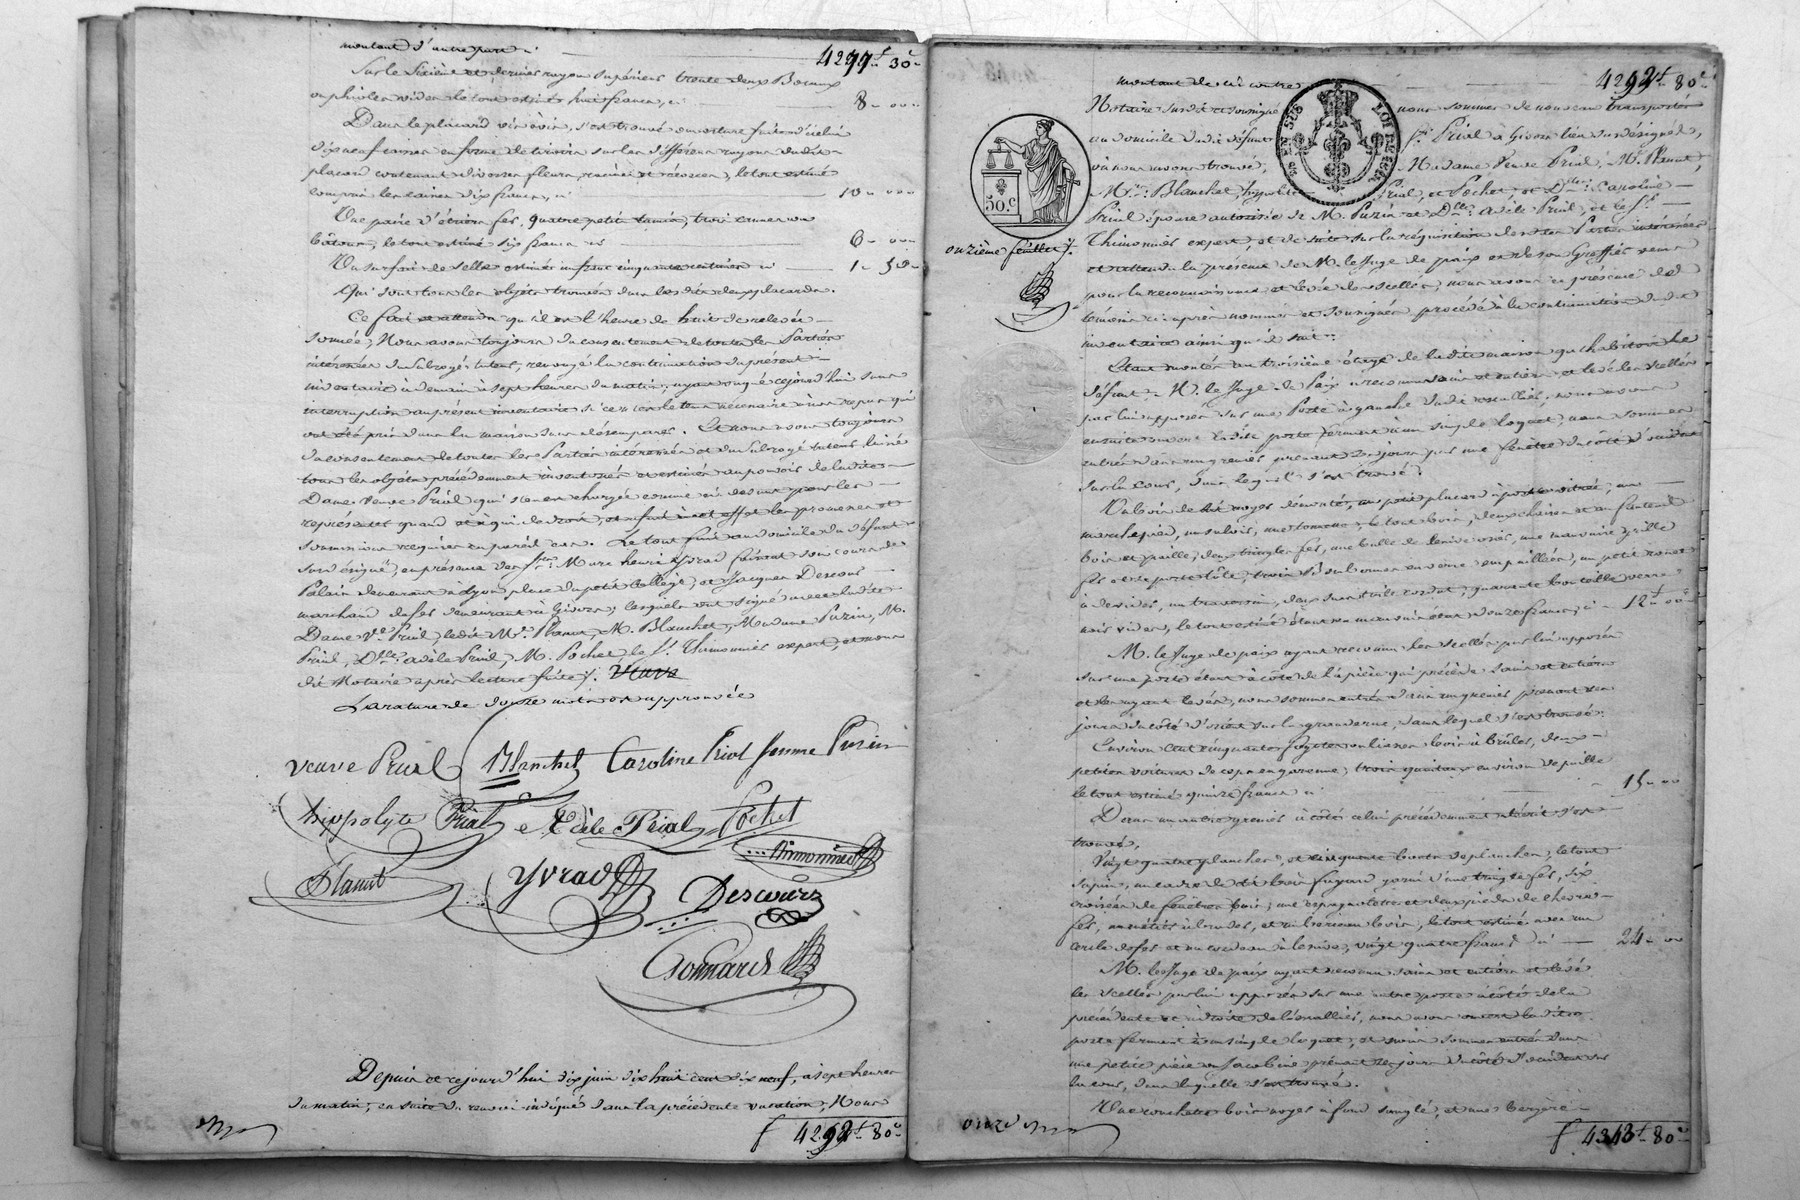 montant d'autre part ci 4277f 30c
Sur le sixième et dernier rayon supérieur trente deux Bocaux
ou phioles vides le tout estimé huit francs, ci 8 - 00
Dans le placard vis à vis, s'est trouvé
dix neuf en forme de tiroirs sur les différens rayons dudit
placard contenant diverses fleurs, racines et écorces, le tout estimé
compris les dix francs, ci 10 - 00
Une paire d'étriers fer, quatre petits tamis, trois cannes ou
bâtons, le tout estimé six francs ci 6 - 00
Un surfaix de selle estimé un franc cinquante centimes ci 1 - 50
Qui sont tous les objets trouvés dans les dits deux placards.
Ce fait et attendu qu'il est l'heure de huit de relevée
sonnée, Nous avons toujours du consentement de toutes les Parties
intéressées du subrogé tuteur, renvoyé la continuation du présent
inventaire à demain à sept heures du matin, ayant vaqué cejourd'hui sans
interruption au présent inventaire si ce n'est le tems nécessaire à un repas qui
ont été pris dans la maison sans désemparer. Et nous avons toujours
du consentement de toutes les Parties intéressées et du subrogé tuteur laissé
tous les objets précédemment inventoriés et estimés au pouvoir de ladite
Dame veuve Prial qui s'en est chargée comme ci dessus pour les
représenter quand et à qui de droit, et a fait à cet effet les promesses et
soumissions requises en pareil cas. Le tout fait au domicile du défunt
sus désigné, en présence des Srs Marc henri Yvrad faisant son cours de
demeurant à Lyon place du petit Collège, et Jacques Descours
marchand de fer demeurant à Givors, lesquels ont signé avec ladite
Dame Ve Prial, ledit Mr Planut, M. Blanchet, Madame Puzin, M.
Prial, Dlle adèle Prial, M. Pochet, le Sr Thimonnier expert, et nous
dit Notaire après lecture faite. Veuve
La rature de douze mots est approuvée
veuve Prial Blanchet Caroline Prial femme Puzin
hippolyte Prial Adèle Prial Pochet
Thimonnier
Planut Yvrad Descours
Gonnard
Depuis ce cejourd'hui dix juin dix huit cent dix neuf, à sept heures
du matin, en suite du renvoi indiqué dans la précédente vacation, Nous
f 4292f 80c
montant de ci contre 4292f 80c
Notaire susdit et soussigné nous sommes de nouveau transportés
au domicile dudit défunt Sr Prial à Givors lieu susdésigné,
où nous avons trouvé, Madame Veuve Prial, M. Planut,
Mrs Blanchet, hypolite Prial, et Pochet, et Dlle Caroline
Prial épouse autorisée de M. Puzin et Dlle adèle Prial, et le Sr
Thimonnier expert, et de suite sur la réquisition desdites Parties intéressées
et attendu la présence de M. le Juge de paix et de son Greffier venus
pour la reconnaissance et levée des scellés, nous avons en présence des
témoins ci après nommés et soussignés procédé à la continuation dudit
inventaire ainsi qu'il suit:
50.c
onzième feuillet
LOI DE 1816
Etant montés au troisième étage de ladite maison qu'habitoit le
défunt, M. le Juge de Paix a reconnu sains et entiers et levé les scellés
par lui apposés sur une Porte à gauche dudit escalier, nous avons
ensuite ouvert ladite porte fermant à un simple loquet, nous sommes
entrés dans un grenier prenant son jour par une fenêtre du côté d'occident
sur la Cour, dans lequel s'est trouvé:
Un bois de lit noyer démonté, un petit placard à porte vitrée, un
marchepied, un , une tonneau, le tout bois, deux chaises et un fauteuil
bois et paille, deux tringles fer, une balle de lenive osier, une mauvaise grille
fer et sa porte tôle, trois en osier empaillées, un petit rouet
à devider, un traversin, deux , quarante bouteilles verre
noir vides, le tout estimé étant en mauvais état douze francs, ci 12f 00c
M. le Juge de paix ayant reconnu les scellés par lui apposés
sur une porte étant à côté de la pièce qui précède sains et entiers
et les ayant levés, nous sommes entrés dans un grenier prenant son
jour du côté d'orient sur la grande rue, dans lequel s'est trouvé:
Environ cent cinquante fagots ou liasses bois à brûler, deux
petites voitures de ceps en garenne, trois quintaux environ de paille
le tout estimé quinze francs ci 15 - 00
Dans un autre grenier à côté celui précédemment décrit s'est
trouvé,
Vingt quatre planches, et cinquante bouts de planches, le tout
sapin, un cadre de lit bois fayard garni d'une tringle fer, six
croisées de fenêtres bois, une espagnolette et deux pieds de chevre
fer, un métier à broder, et un berceau bois, le tout estimé avec un
cercle de fer et un cordeau à lessive, vingt quatre francs ci 24 - 00
M. le Juge de paix ayant reconnu sains et entiers et levé
les scellés par lui apposés sur une autre porte à côté de la
précédente et à droite de l'escalier, nous avons ouvert ladite
porte fermant à un simple loquet, et nous sommes entrés dans
une petite pièce en Jacobine prenant son jour du côté d'occident sur
la cour, dans laquelle s'est trouvé.
Une couchette bois noyer à fond sanglé, et une bergère
onze f 4343f 80c